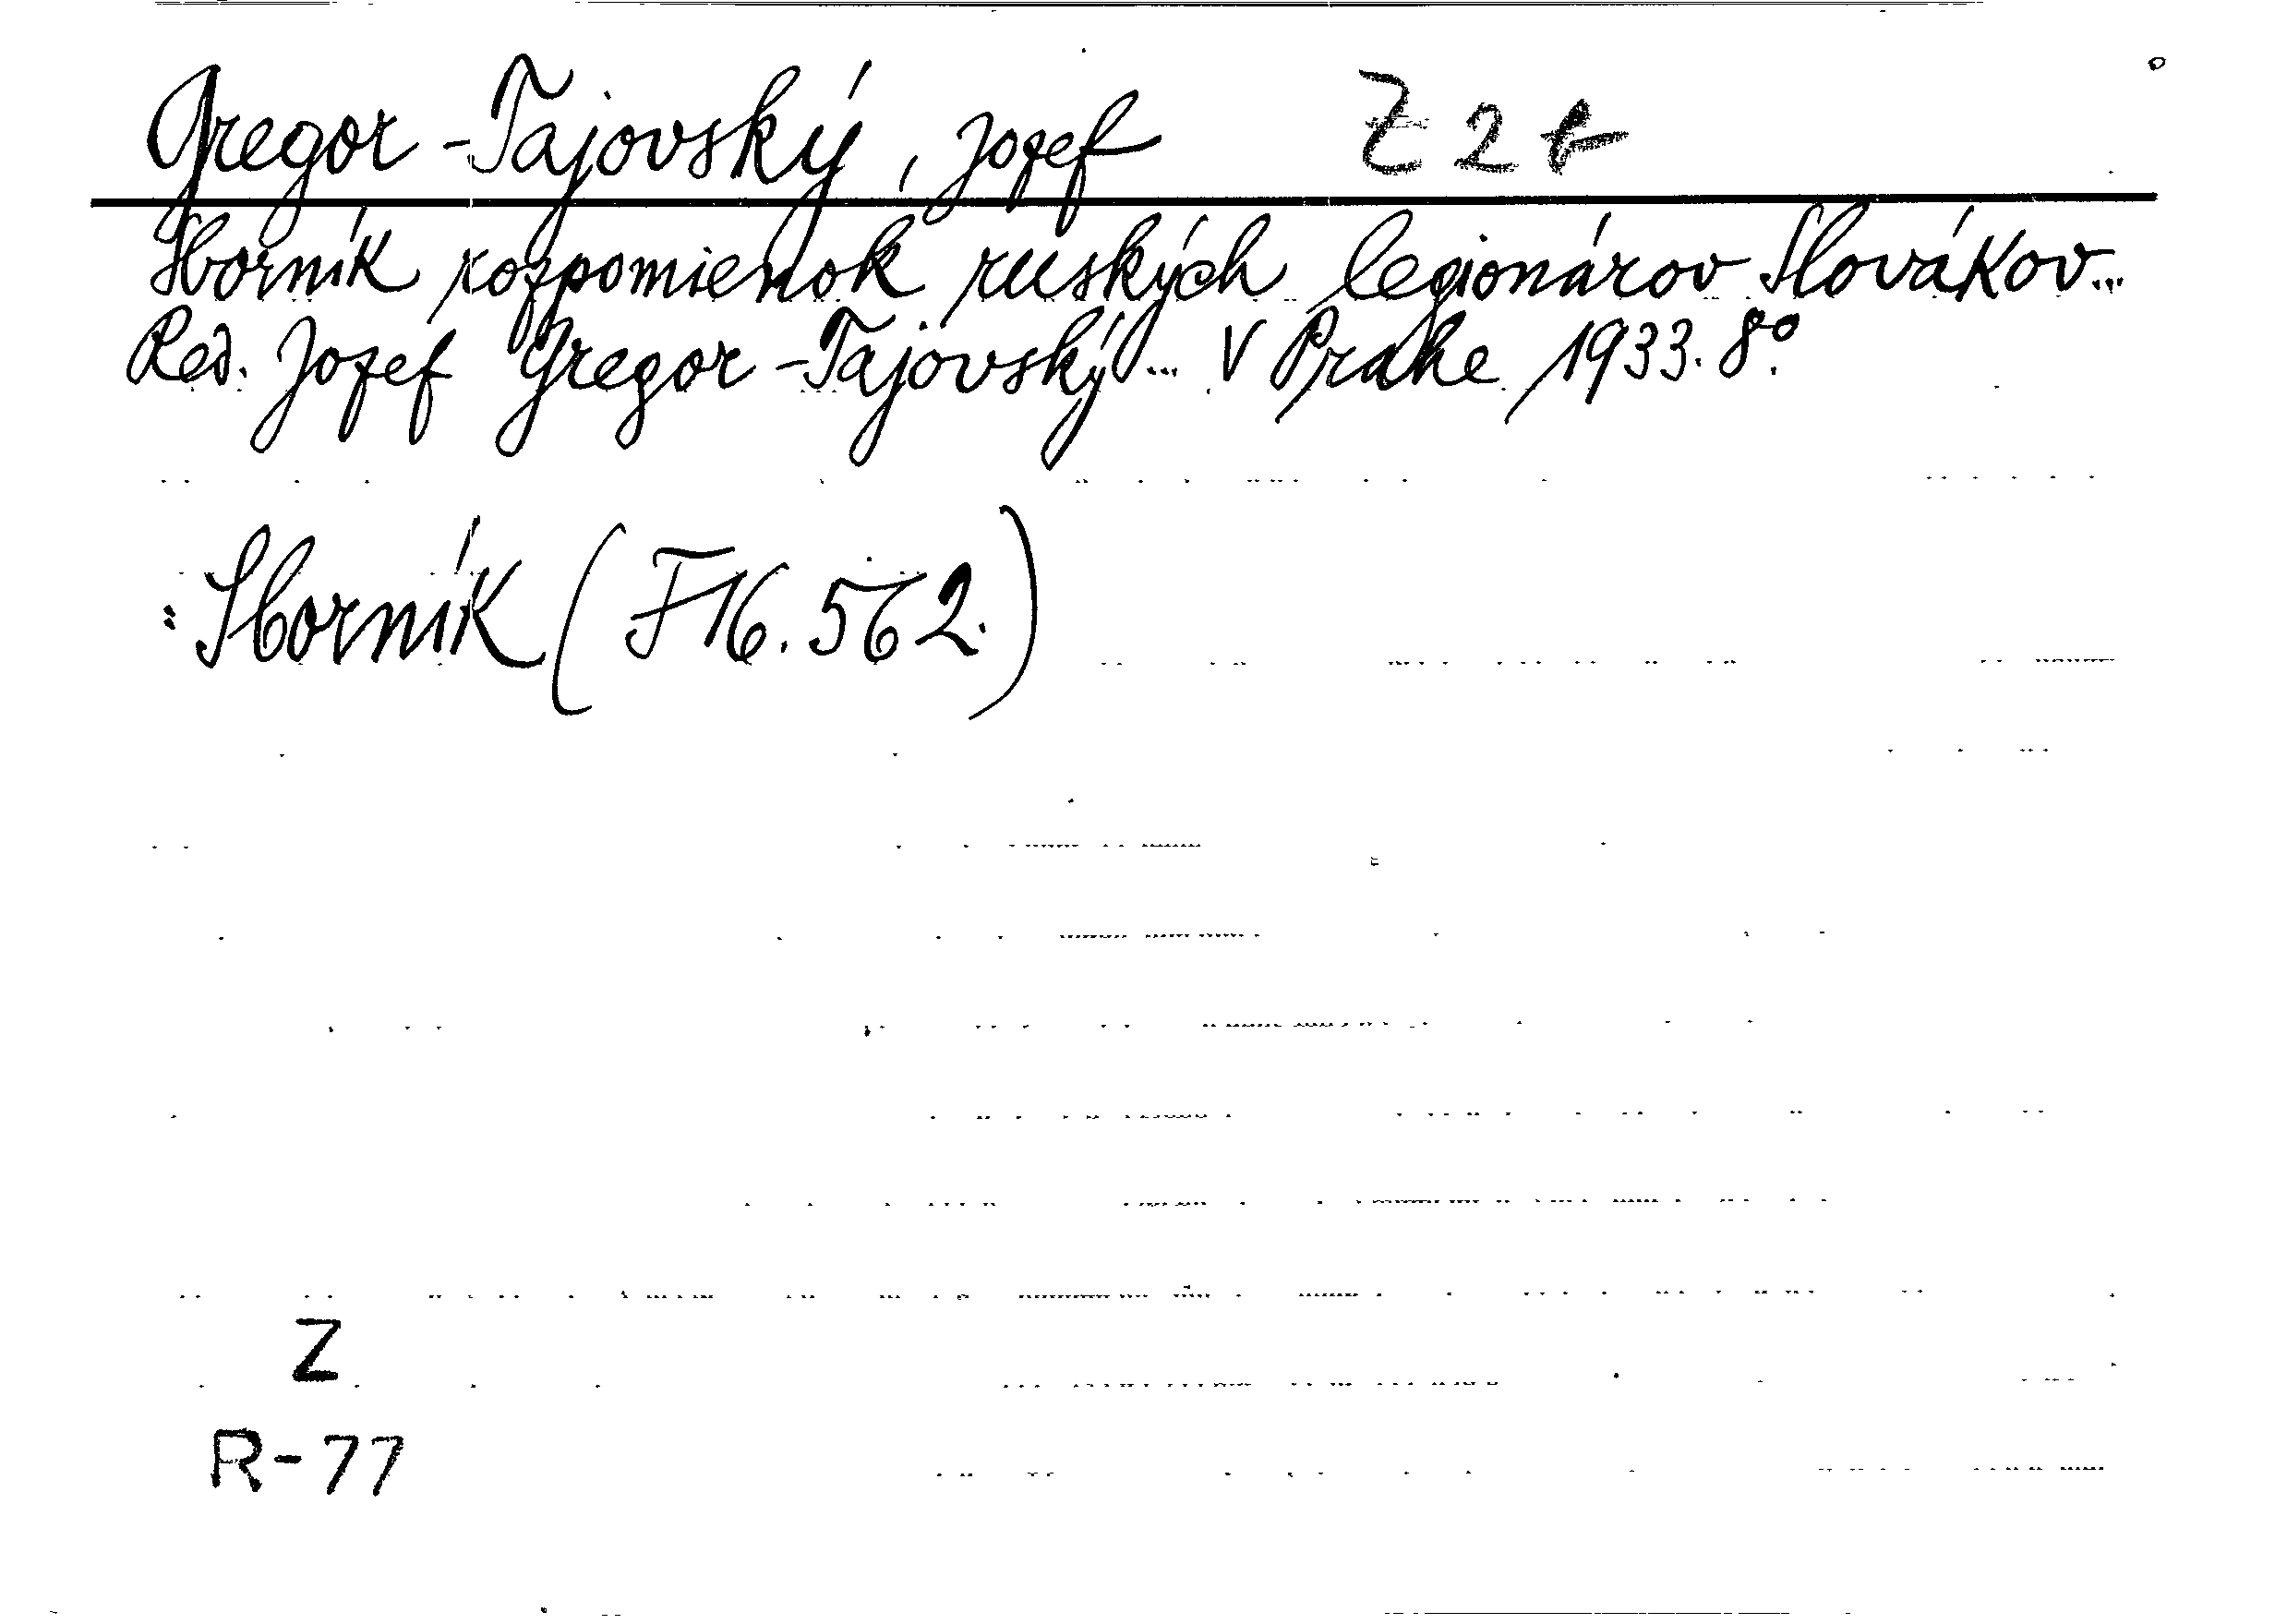 Gregor-Tajovský, Jozef Z 2 t
Sborník rozpomienok ruských legionárov Slovákov...
Red. Jozef Gregor-Tajovský... V Prahe 1933. 8°.
: Sborník (F16.562.)
Z
R-77